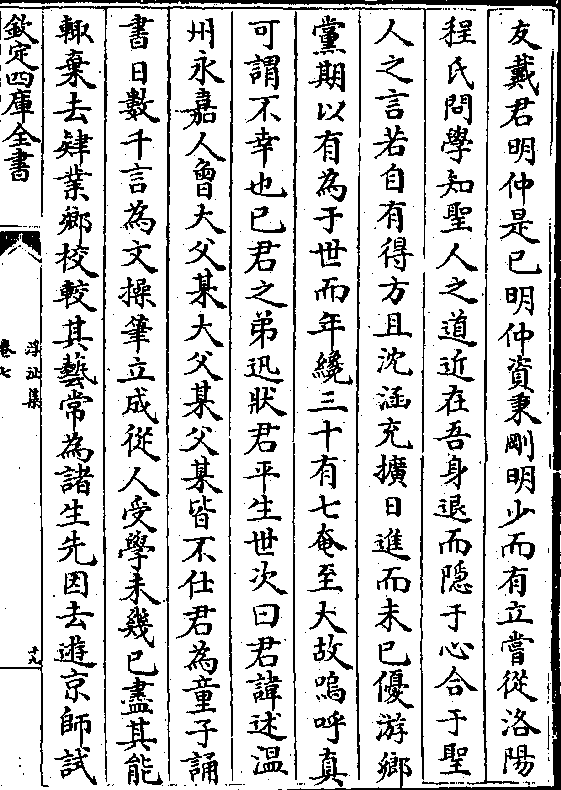 友戴君明仲是已明仲資秉剛明少而有立嘗從洛陽
程氏問學知聖人之道近在吾身退而隱于心合于聖
人之言若自有得方且沈涵充擴日進而未已優游鄉
黨期以有為于世而年纔三十有七奄至大故嗚呼真
可謂不幸也已君之弟迅狀君平生世次曰君諱述溫
州永嘉人曾大父某大父某父某皆不仕君為童子誦
書日數千言為文操筆立成從人受學未幾已盡其能
輒棄去肄業鄉校較其藝常為諸生先因去遊京師試
欽定四庫全書
浮沚集
卷七
十九